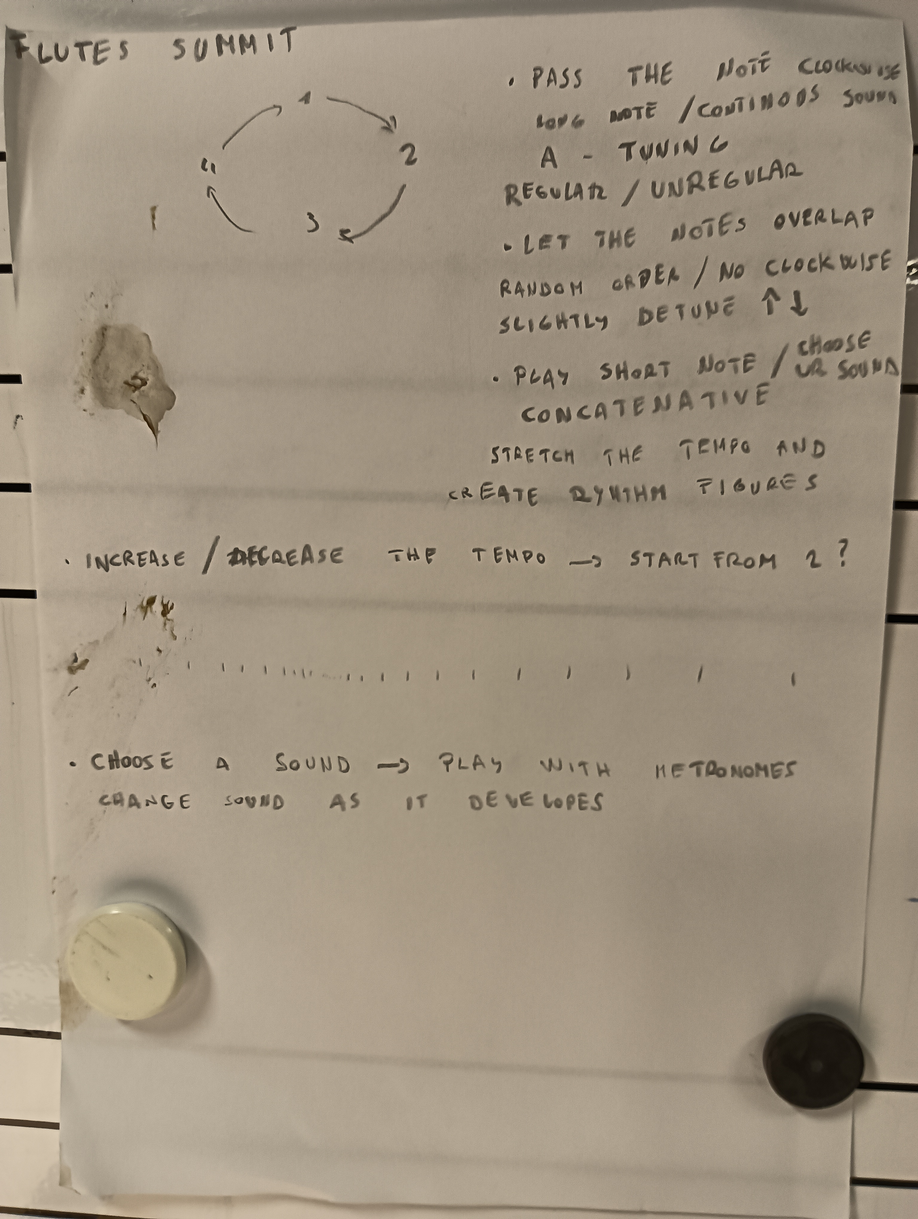 FLUTES SUMMIT
1
2
3
4
• PASS THE NOTE CLOCKWISE
LONG NOTE / CONTINOOS SOUND
A - TUNING
REGULAR / UNREGULAR
• LET THE NOTES OVERLAP
RANDOM ORDER / NO CLOCKWISE
SLIGHTLY DETUNE ↑↓
• PLAY SHORT NOTE / CHOOSE UR SOUND
CONCATENATIVE
STRETCH THE TEMPO AND
CREATE RYNTHM FIGURES
• INCREASE / DECREASE THE TEMPO → START FROM 2 ?
• CHOOSE A SOUND → PLAY WITH METRONOMES
CHANGE SOUND AS IT DEVELOPES